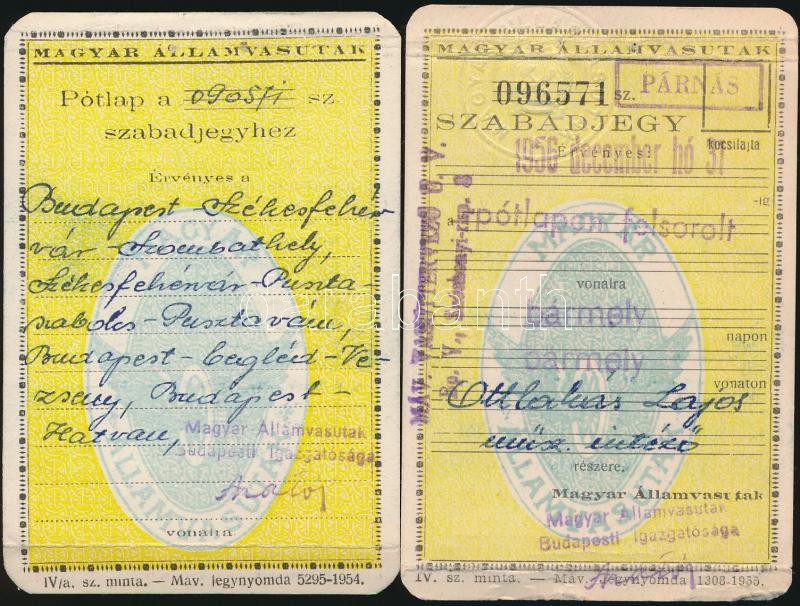 MAGYAR ÁLLAMVASUTAK
Pótlap a 090571 sz.
szabadjegyhez
Érvényes a
Budapest-Székesfehér
vár-Szombathely,
Székesfehérvár-Puszta-
szabolcs-Pusztavám,
Budapest-Cegléd-Ve-
zseny, Budapest-
Hatvan,
Magyar Államvasutak
Budapesti Igazgatósága
vonalra
MAGYAR
ÁLLAMVASUTAK
IV/a. sz. minta. — Máv. jegynyomda 5295-1954.
MAGYAR ÁLLAMVASUTAK
096571 sz.
PÁRNÁS
SZABADJEGY
kocsifajta
Érvényes:
1956 december hó 31
-ig
a pótlapon felsorolt
vonalra
bármely
napon
bármely
vonaton
Lajos
műsz. intéző
részére.
Magyar Államvasutak
Magyar Államvasutak
Budapesti Igazgatósága
MAGYAR
ÁLLAMVASUTAK
IV. sz. minta. — Máv. jegynyomda 1308-1955.
darabanth